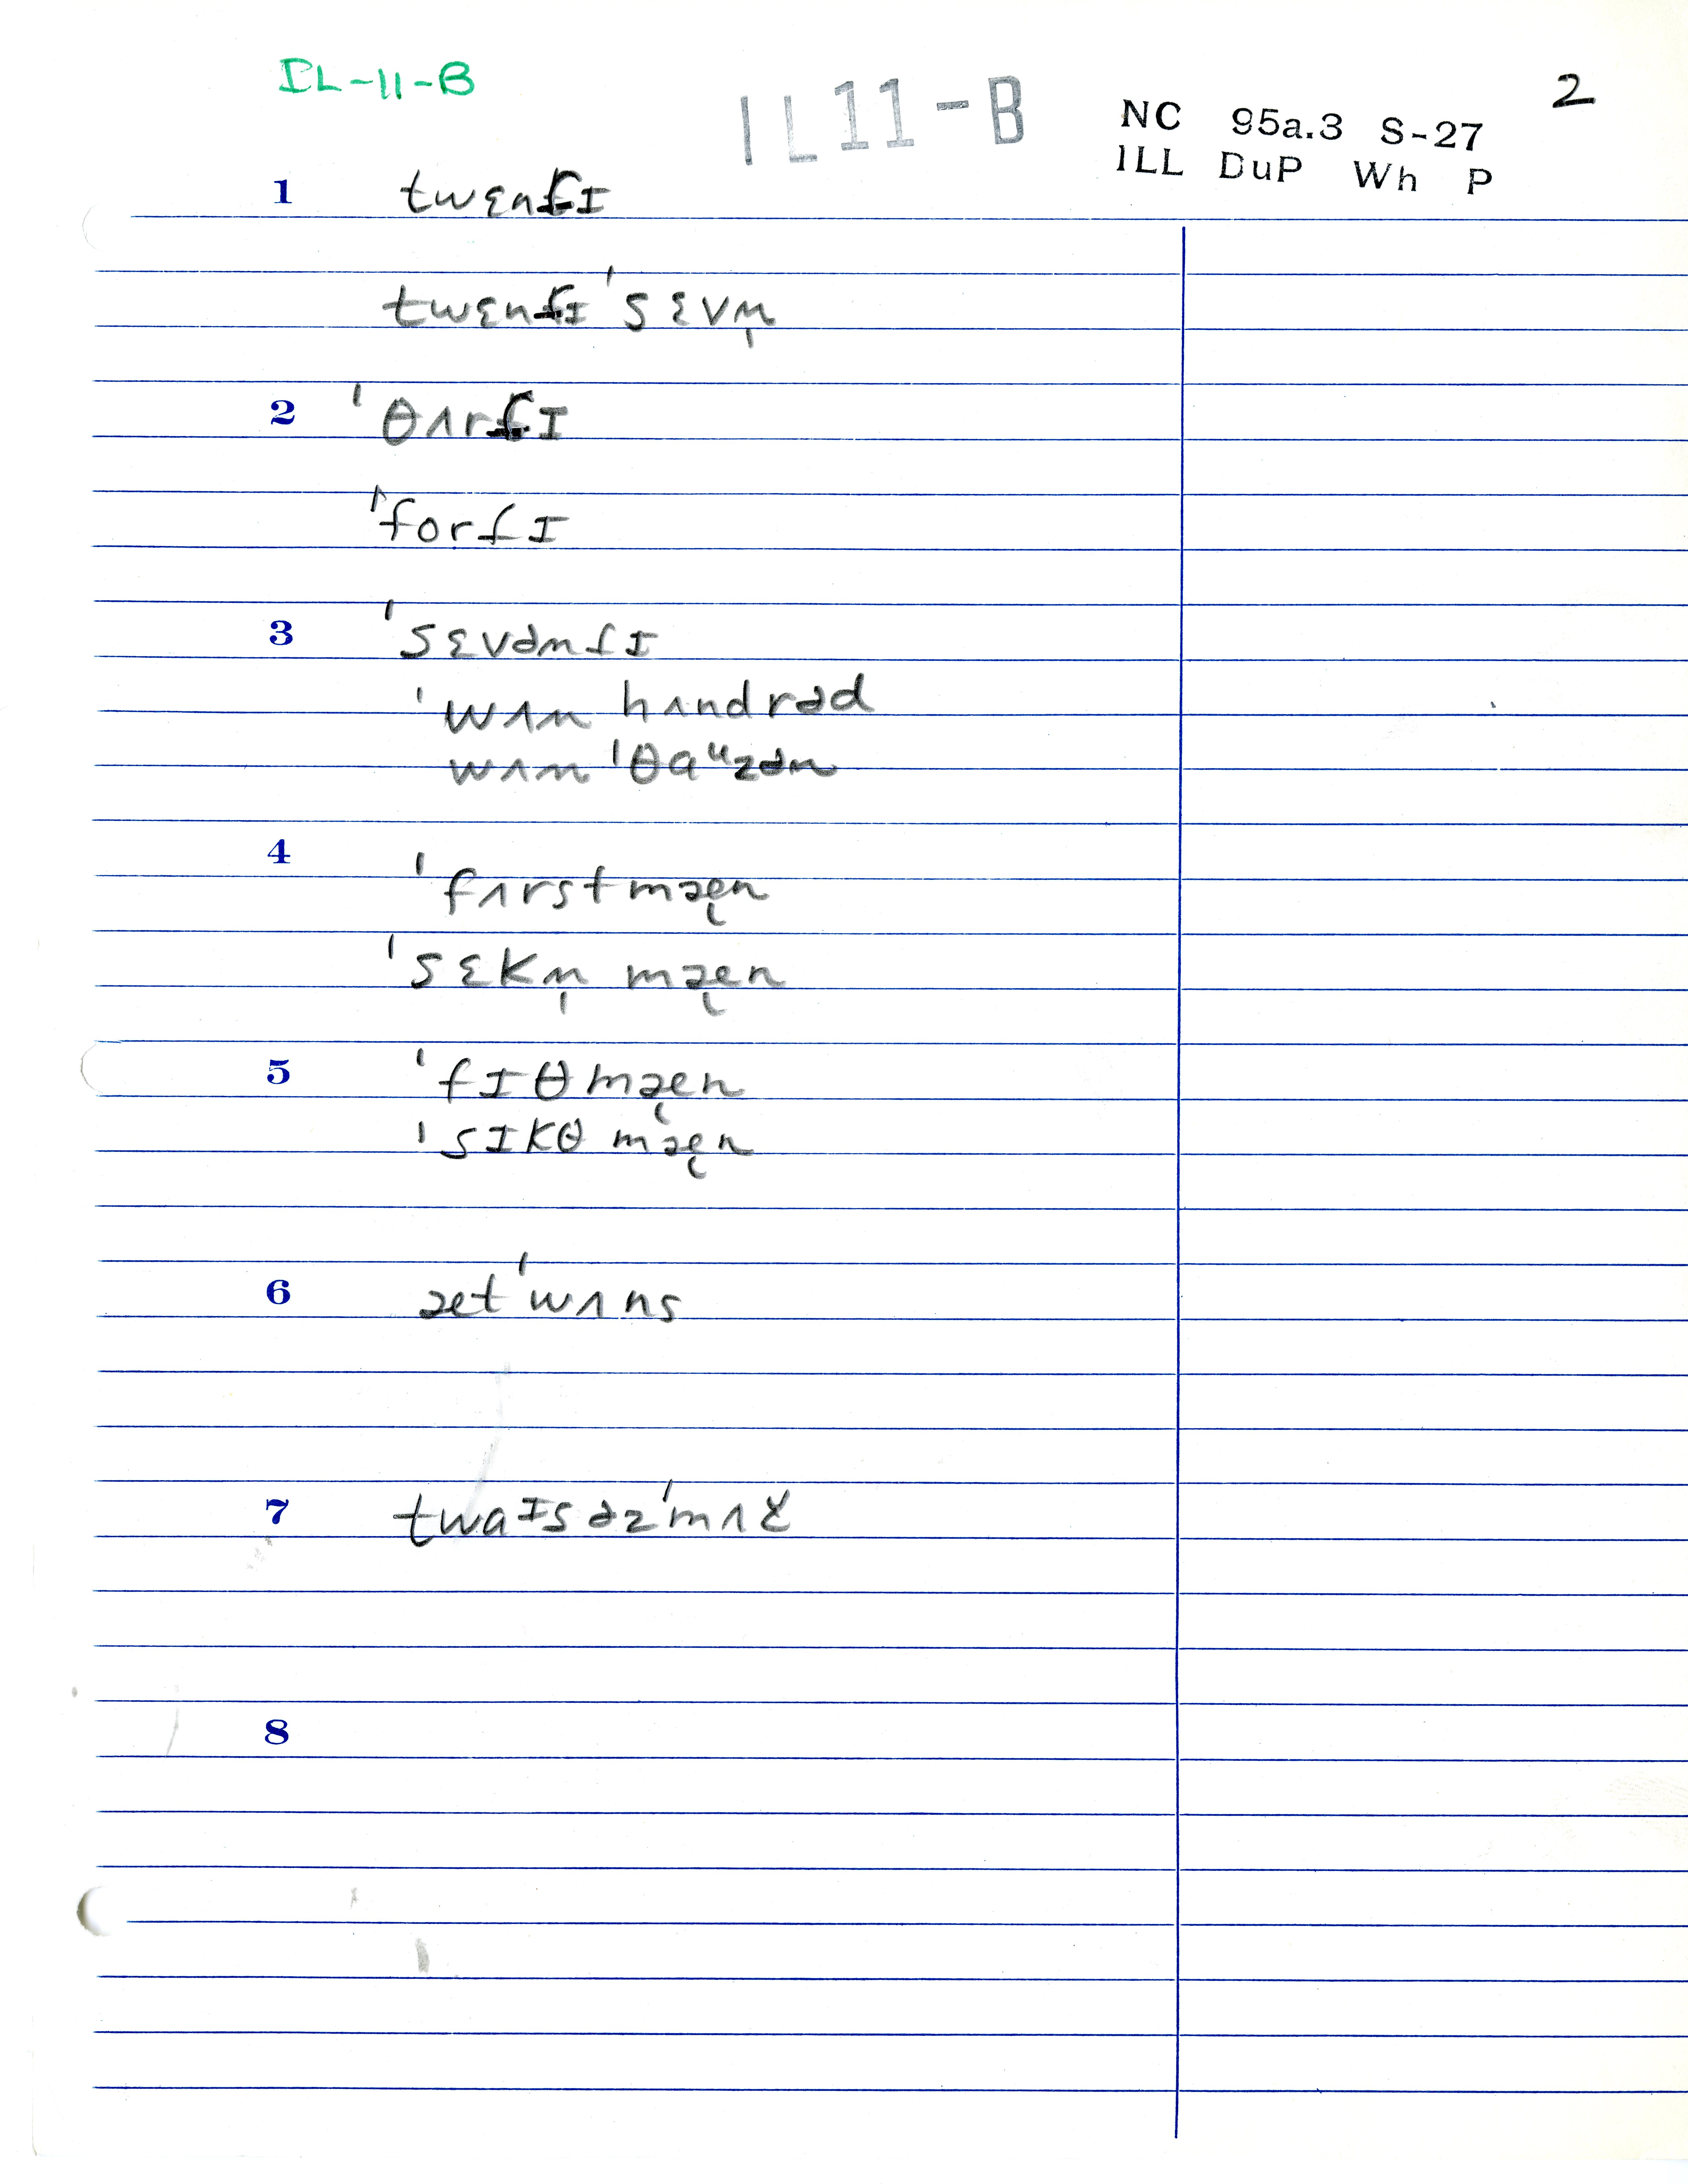 IL-11-B
IL11-B
2
NC 95a.3 S-27
ILL DuP Wh P
1 twɛnɾɪ
twɛnɾɪˈsɛvn̩
2 ˈθʌrɾɪ
ˈforɾɪ
3 ˈsɛvənɾɪ
ˈwʌn hʌndrəd
wʌn ˈθaᵘzən
4 ˈfʌrstmæ̨n
ˈsɛkn̩ mæ̨n
5 ˈfɪθmæ̨n
ˈsɪkθ mæ̨n
6 æt ˈwʌns
7 twaᶦs əzˈmʌč
8